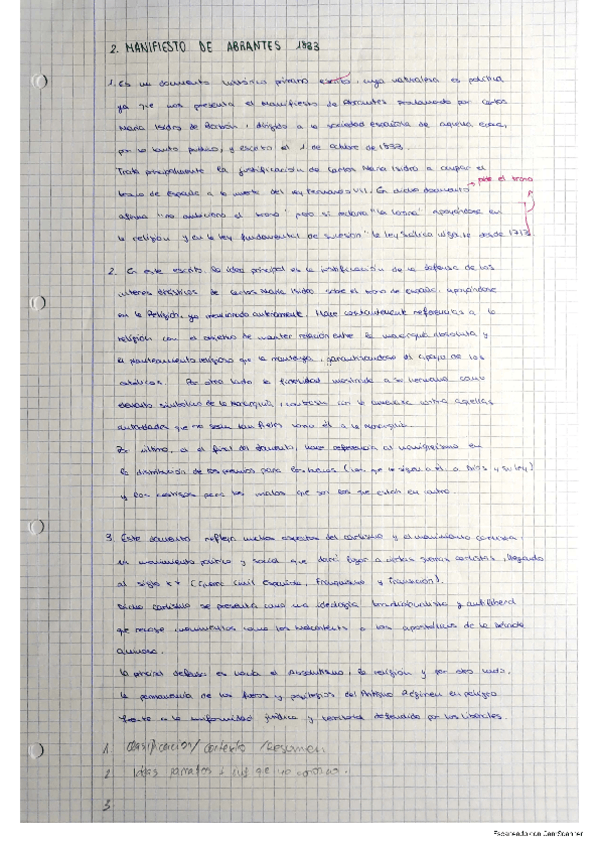 2. MANIFIESTO DE ABRANTES 1833
1. Es un documento histórico primario escrito, cuya naturaleza es política
ya que nos presenta el Manifiesto de Abrantes proclamado por Carlos
María Isidro de Borbón, dirigido a la sociedad española de aquella época,
por lo tanto público, y escrito el 1 de Octubre de 1833.
Trata principalmente la justificación de Carlos María Isidro a ocupar el
trono de España a la muerte del rey Fernando VII. En dicho documento
pide el trono
afirma "no ambiciono el trono" pero si reclama "la corona" apoyándose en
la religión y en la ley fundamental de sucesión la ley Sálica vigente desde 1713
2. En este escrito, la idea principal es la justificación de la defensa de los
intereses dinásticos de Carlos María Isidro sobre el trono de España, apoyándose
en la Religión, ya mencionado anteriormente. Hace constantemente referencias a la
religión con el objetivo de mantener relación entre la monarquía absoluta y
el mantenimiento religioso que la mantenga, garantizándose el apoyo de los
católicos. Por otro lado la fidelidad a su hermano como
elemento simbólico de la Monarquía, contrasta con la amenaza contra aquellas
autoridades que no sean tan fieles como él a la monarquía.
Por último, al final del documento, hace referencia al maniqueísmo en
la distribución de los premios para los buenos (los que le sigan a él, a Dios y su ley)
y los castigos para los malos que son los que están en contra.
3. Este documento refleja muchos aspectos del carlismo y el movimiento carlista.
Un movimiento político y social que dará lugar a varias guerras carlistas, llegando
al siglo XX (Guerra Civil Española, Franquismo y Transición).
Dicho carlismo se presenta como una ideología tradicionalista y antiliberal
que recoge movimientos como los malcontents o los apostólicos de la Década
Ominosa.
La principal defensa es hacia el Absolutismo, la religión y por otro lado,
la permanencia de los fueros y privilegios del Antiguo Régimen en peligro
frente a la uniformidad jurídica y territorial defendida por los liberales.
1. Clasificación / contexto / Resumen
2 Ideas
3.
Escaneado con CamScanner